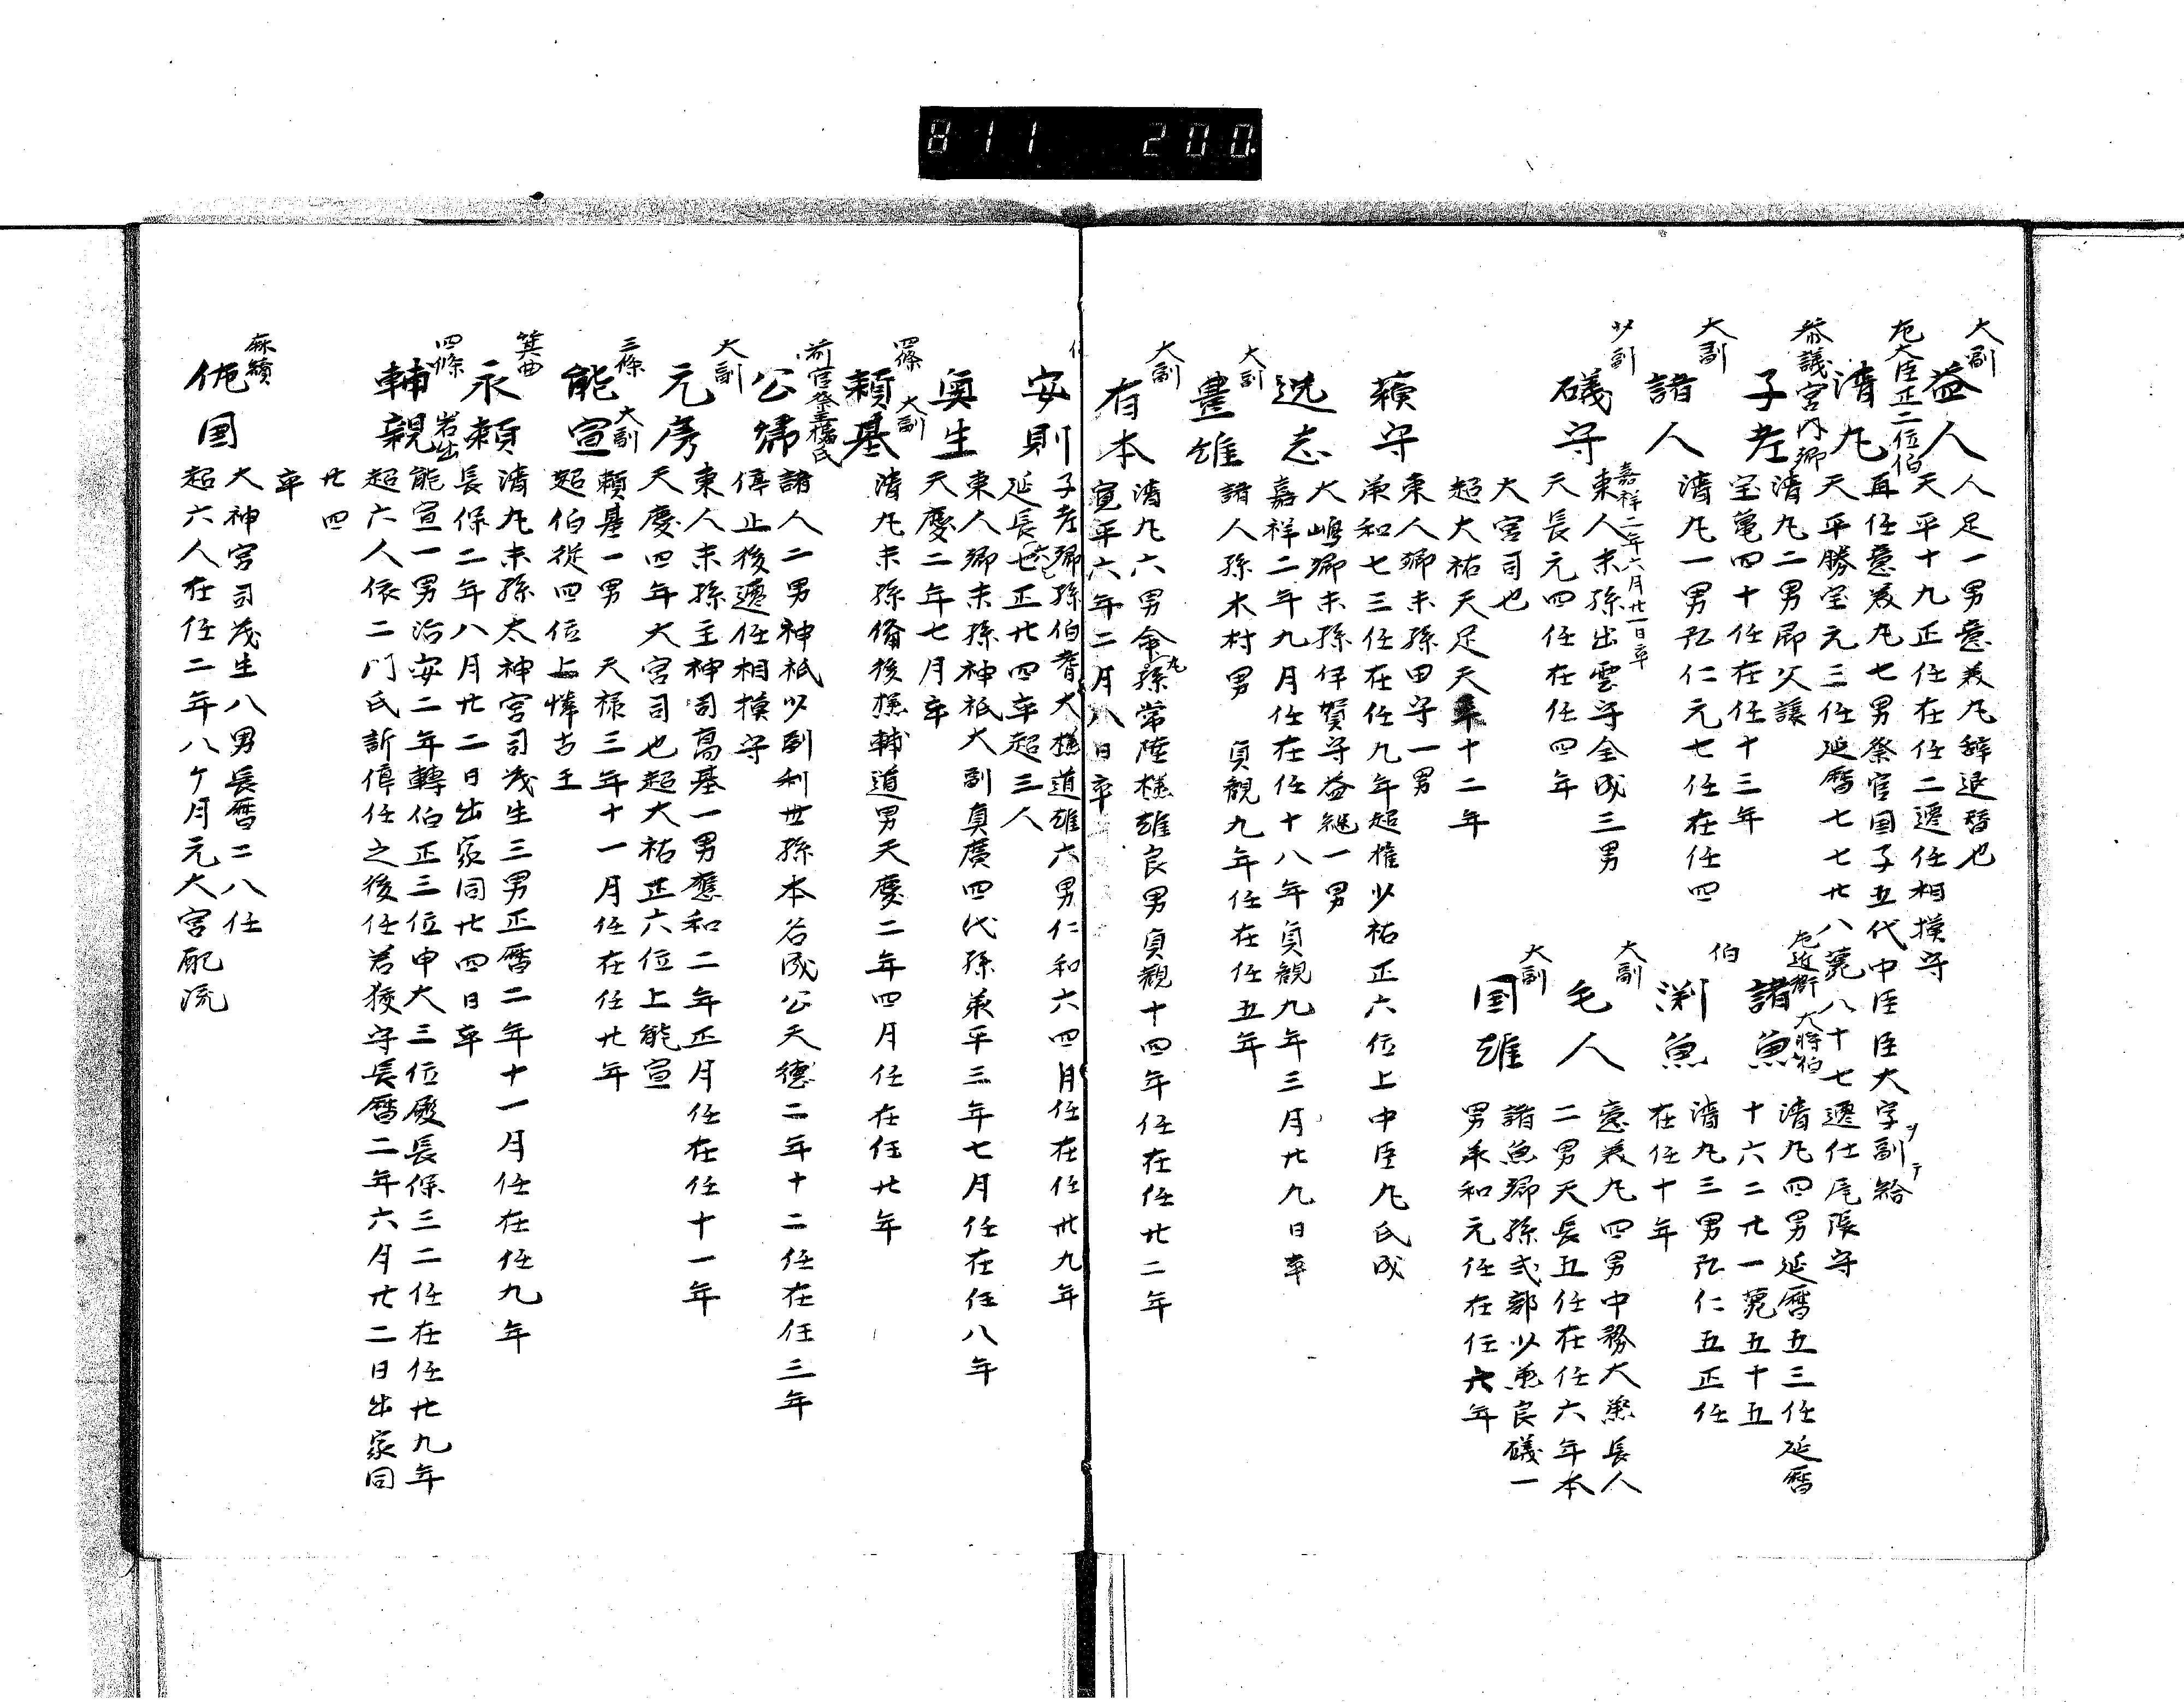 811 200
大副
益人
人足一男意美丸辞退替也
天平十九正任在任二遷任相摸守
右大臣正二位伯
清丸
再任意美丸七男祭官国子五代中臣臣大字ヲ副テ給
天平勝宝元三任延暦七七廿八薨八十七遷任尾張守
参議宮内卿
子老
清丸二男即父譲
宝亀四十任在任十三年
左近衛大将伯
諸魚
清丸四男延暦五三任延暦
十六二廿一薨五十五
大副
諸人
清丸一男弘仁元七任在任四
伯
渕魚
清丸三男弘仁五正任
在任十年
少副
礒守
嘉祥二年六月廿一日卒
東人末孫出雲守全成三男
天長元四任在任四年
大宮司也
超大祐天足天平十二年
大副
毛人
意美丸四男中務大丞長人
二男天長五任在任六年本
大副
国雄
諸魚卿孫式部少丞良礒一
男承和元任在任六年
薭守
東人卿末孫田守一男
承和七三任在任九年超権少祐正六位上中臣丸氏成
逸志
大嶋卿末孫伊賀守益継一男
嘉祥二年九月任在任十八年貞観九年三月廿九日卒
大副
豊雄
諸人孫木村男 貞観九年任在任五年
大副
有本
清丸六男今丸孫常陸椽雄良男貞観十四年任在任廿二年
寛平六年二月八日卒
安則
子老卿孫伯耆大椽道雄六男仁和六四月任在任卅九年
延長七正廿四卒超三人
奥生
東人卿末孫神祇大副真廣四代孫承平三年七月任在任八年
天慶二年七月卒
四條 大副
頼基
清丸末孫備後椽輔道男天慶二年四月任在任廿年
公節
諸人二男神祇少副利世孫本名成公天徳二年十二任在任三年
停止後遷任相摸守
大副
元房
東人末孫主神司高基一男應和二年正月任在任十一年
天慶四年大宮司也超大祐正六位上能宣
三條 大副
能宣
頼基一男 天禄三年十一月任在任廿年
超伯従四位上博古王
箕曲
永頼
清丸末孫太神宮司茂生三男正暦二年十一月任在任九年
長保二年八月廿二日出家同廿四日卒
四條 岩出
輔親
能宣一男治安二年轉伯正三位申大三位殿長保三二任在任卅九年
超六人依二門氏訴停任之後任若狭守長暦二年六月廿二日出家同
廿四
卒
麻績
佐国
大神宮司茂生八男長暦二八任
超六人在任二年八ケ月元大宮配流